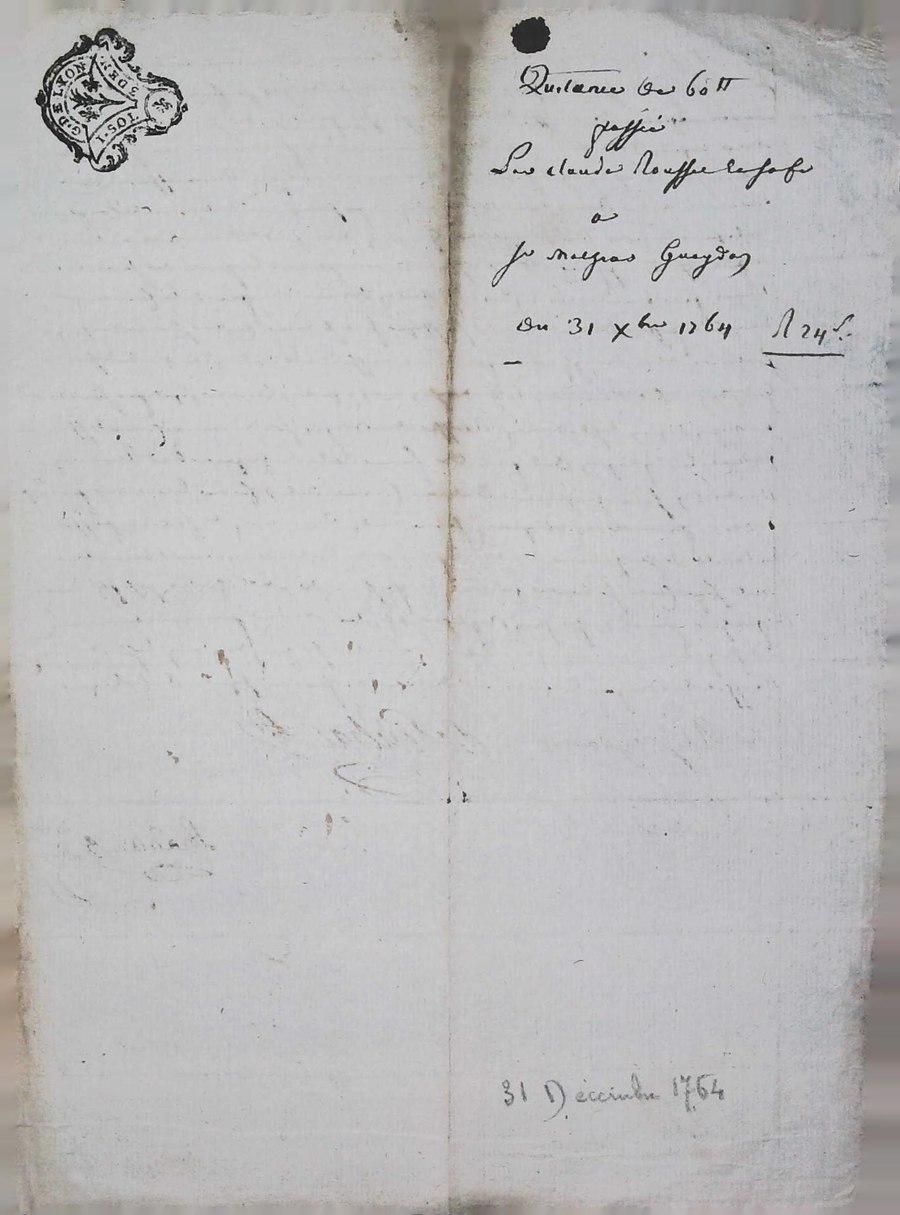 G. DE LYON
1. SOL
3. DEN
Quitance de 60 ₶
passée
Par claude Rousset le fils
a
Sr Gueydan
du 31 Xbre 1764 R 24 s.
31 Décembre 1764